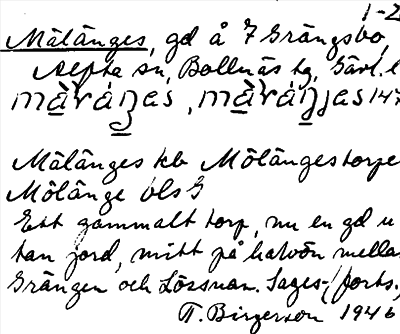 1-2
Målänges, gd å 7 Grängsbo,
Alfta sn, Bollnäs tg, Gävl. l
Målänges kb Mölängestorpe
Mölänge bls G
Ett gammalt torp, nu en gd u
tan jord, mitt på halvön mella
Grängen och Lössnan. Sages- (forts.)
T. Birgerson 1946